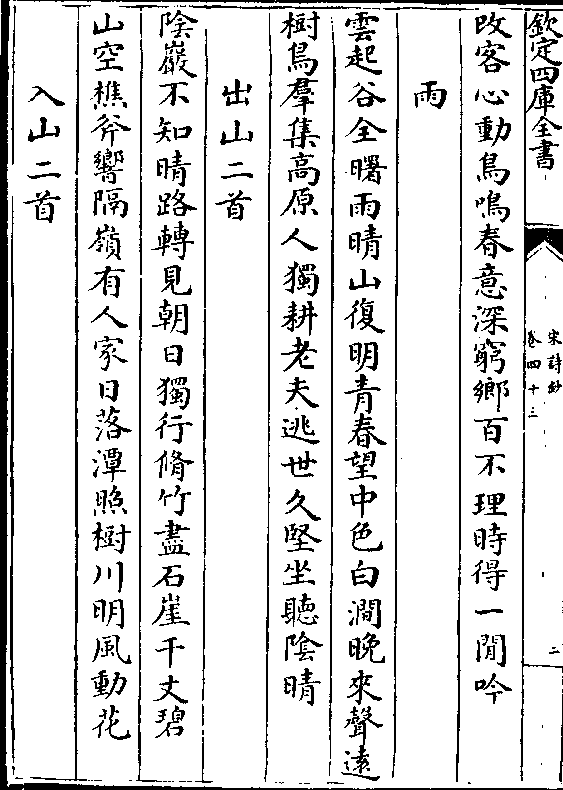 欽定四庫全書
宋詩鈔
卷四十三
二
改客心動鳥鳴春意深窮鄉百不理時得一閒吟
雨
雲起谷全曙雨晴山復明青春望中色白澗晚來聲遠
樹鳥羣集高原人獨耕老夫逃世久堅坐聽陰晴
出山二首
陰巖不知晴路轉見朝日獨行脩竹盡石崖千丈碧
山空樵斧響隔嶺有人家日落潭照樹川明風動花
入山二首